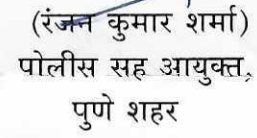 (रंजन कुमार शर्मा)
पोलीस सह आयुक्त,
पुणे शहर